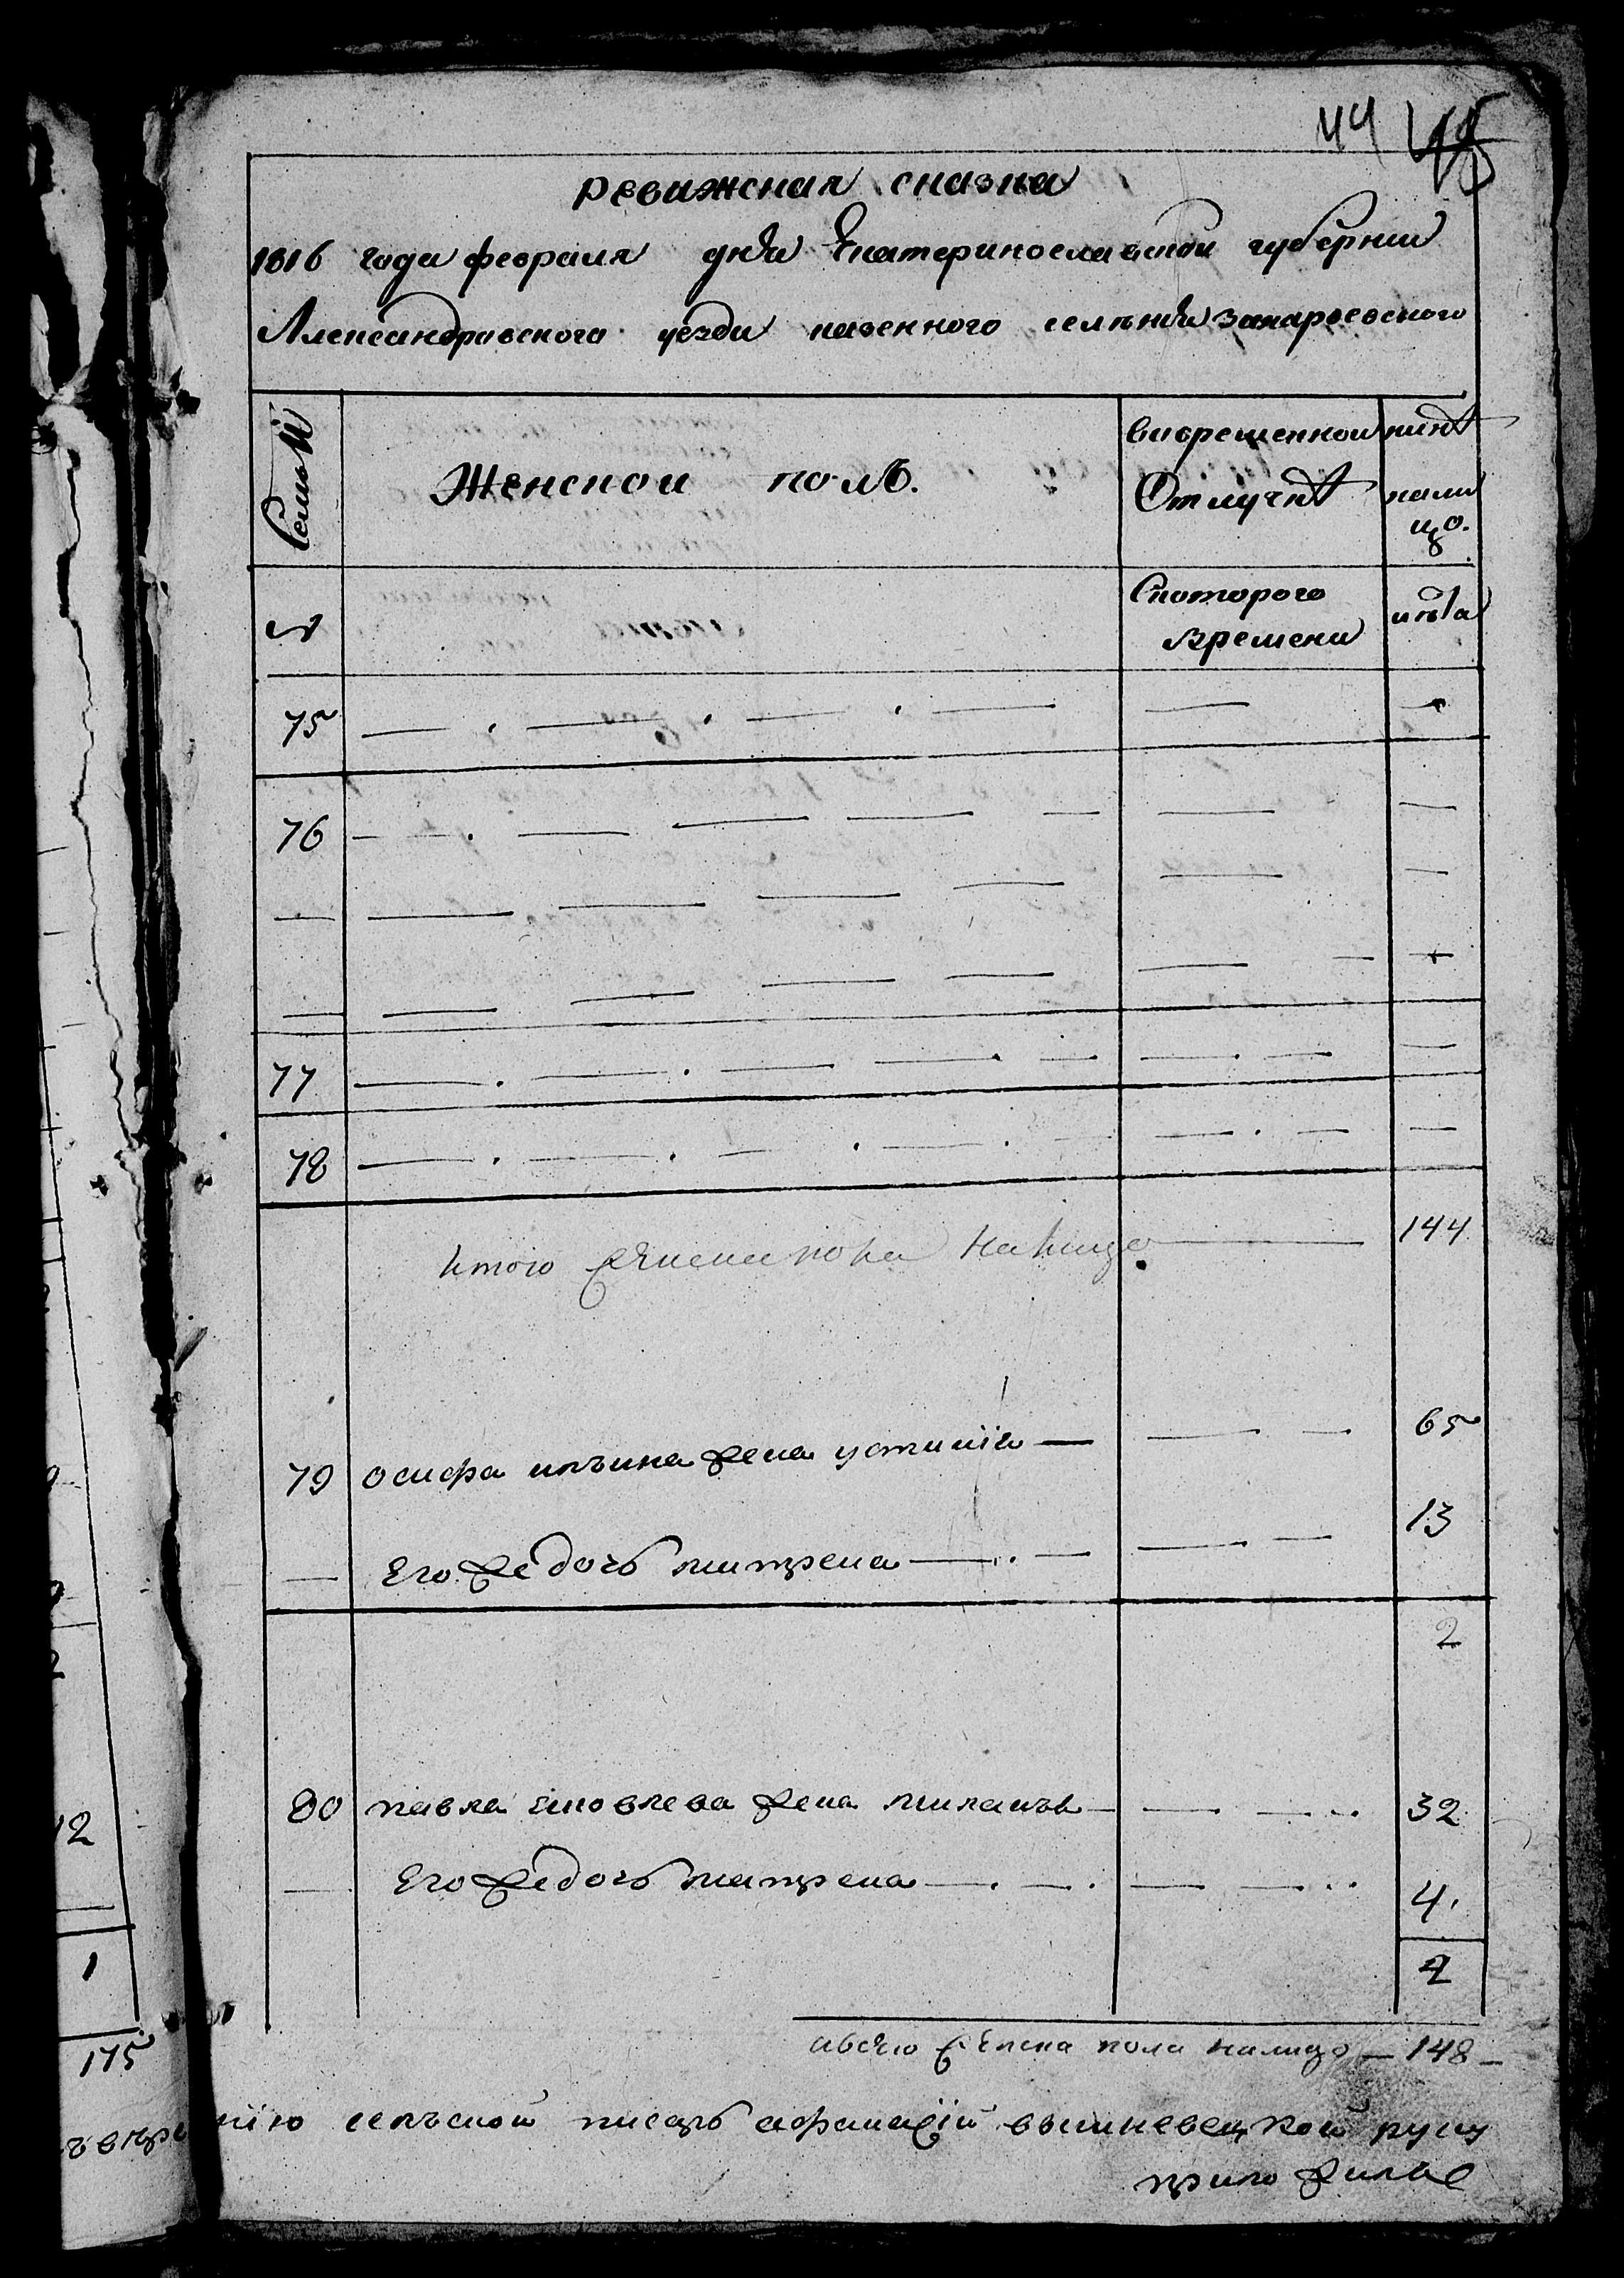 44 45
ревижская сказка
1816 года февраля дня Екатеринославской губернии
Александравского уезда казенного селения Захарьевского
Семьи
Женской полъ.
вовременной
Отлучке
ныне
нали
цо.
№
Скоторого
времени
лета
75
76
77
78
итого женска пола налицо 144
79 осифа ильина жена устинія 65
Его же дочь матрена 13
2
80 павла яковлева жена маланья 32
Его же дочь матрена 4
2
авсего женска пола налицо 148
12
1
175
нію сельской писарь афанасій вышневецкой руку
приложилъ